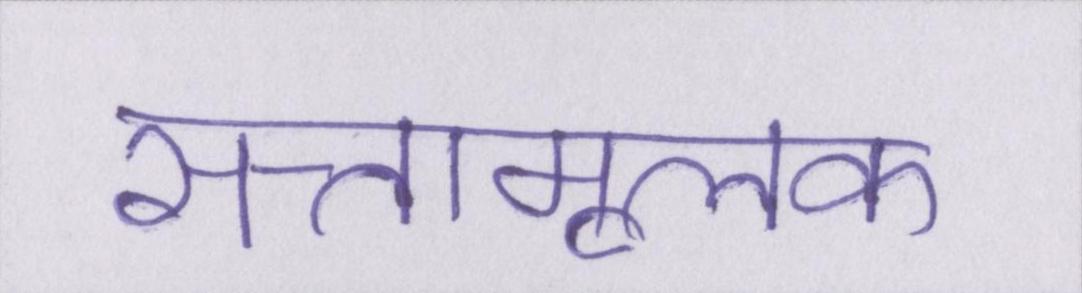 सत्तामूलक